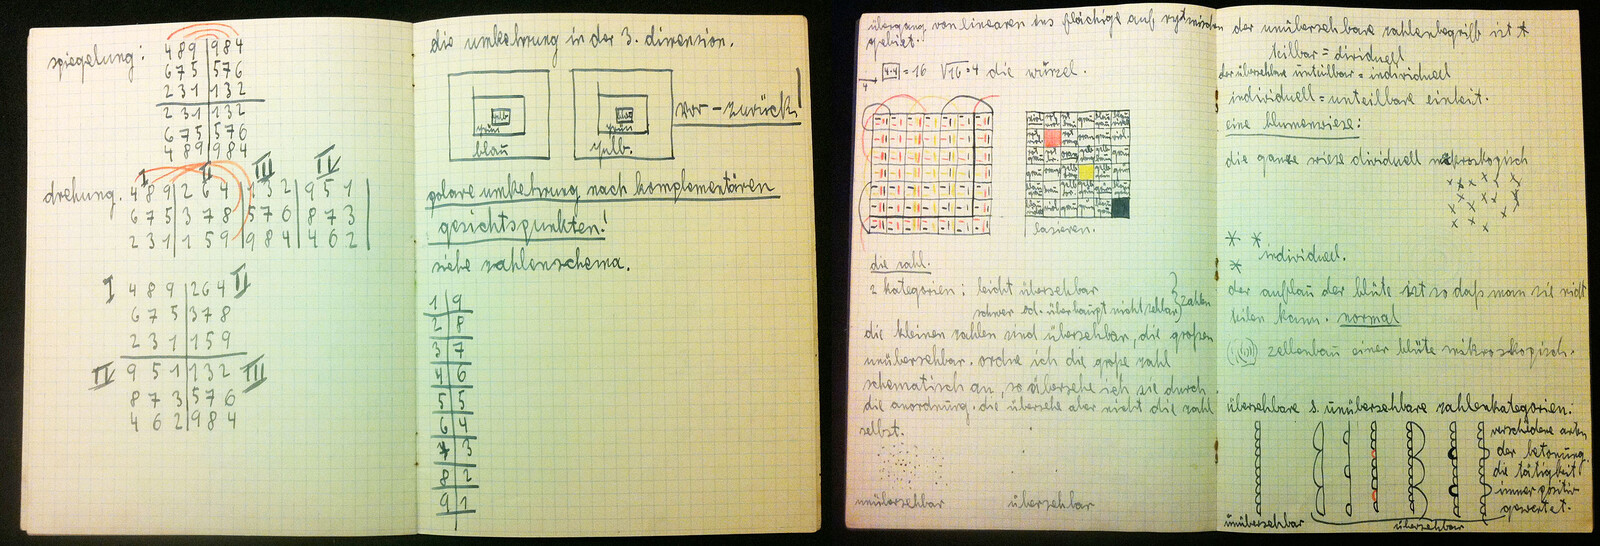 spiegelung:
4 8 9 9 8 4
6 7 5 5 7 6
2 3 1 1 3 2
2 3 1 1 3 2
6 7 5 5 7 6
4 8 9 9 8 4
I II III IV
drehung. 4 8 9 2 6 4 1 3 2 9 5 1
6 7 5 3 7 8 5 7 6 8 7 3
2 3 1 1 5 9 9 8 4 4 6 2
I 4 8 9 2 6 4 II
6 7 5 3 7 8
2 3 1 1 5 9
IV 9 5 1 1 3 2 III
8 7 3 5 7 6
4 6 2 9 8 4
die umkehrung in der 3. dimension.
gelb blau
grün grün
blau gelb.
vor - zurück
polare umkehrung nach komplementären
gesichtspunkten!
siehe zahlenschema.
1 9
2 8
3 7
4 6
5 5
6 4
7 3
8 2
9 1
übergang von linearen ins flächige auf rytmischen
gebiet.
4·4 = 16 √16 = 4 die wurzel.
4
lasieren.
die zahl.
2 kategorien: leicht übersehbar
schwer od. überhaupt nicht zählbar } zahlen
die kleinen zahlen sind übersehbar, die großen
unübersehbar. ordne ich die große zahl
schematisch an, so übersehe ich sie durch
die anordnung. die übersehe aber nicht die zahl
selbst.
unübersehbar übersehbar
der unübersehbare zahlenbegriff ist
teilbar = dividuell
der übersehbare unteilbar = individuell
individuell = unteilbare einheit.
eine blumenwiese:
die ganze wiese dividuell makroskopisch
individuell.
der aufbau der blüte ist so daß man sie nicht
teilen kann. normal
zellenbau einer blüte mikroskopisch.
übersehbare & unübersehbare zahlenkategorien:
verschiedene arten
der betonung.
die tätigkeit
immer positiv
gewertet.
unübersehbar übersehbar